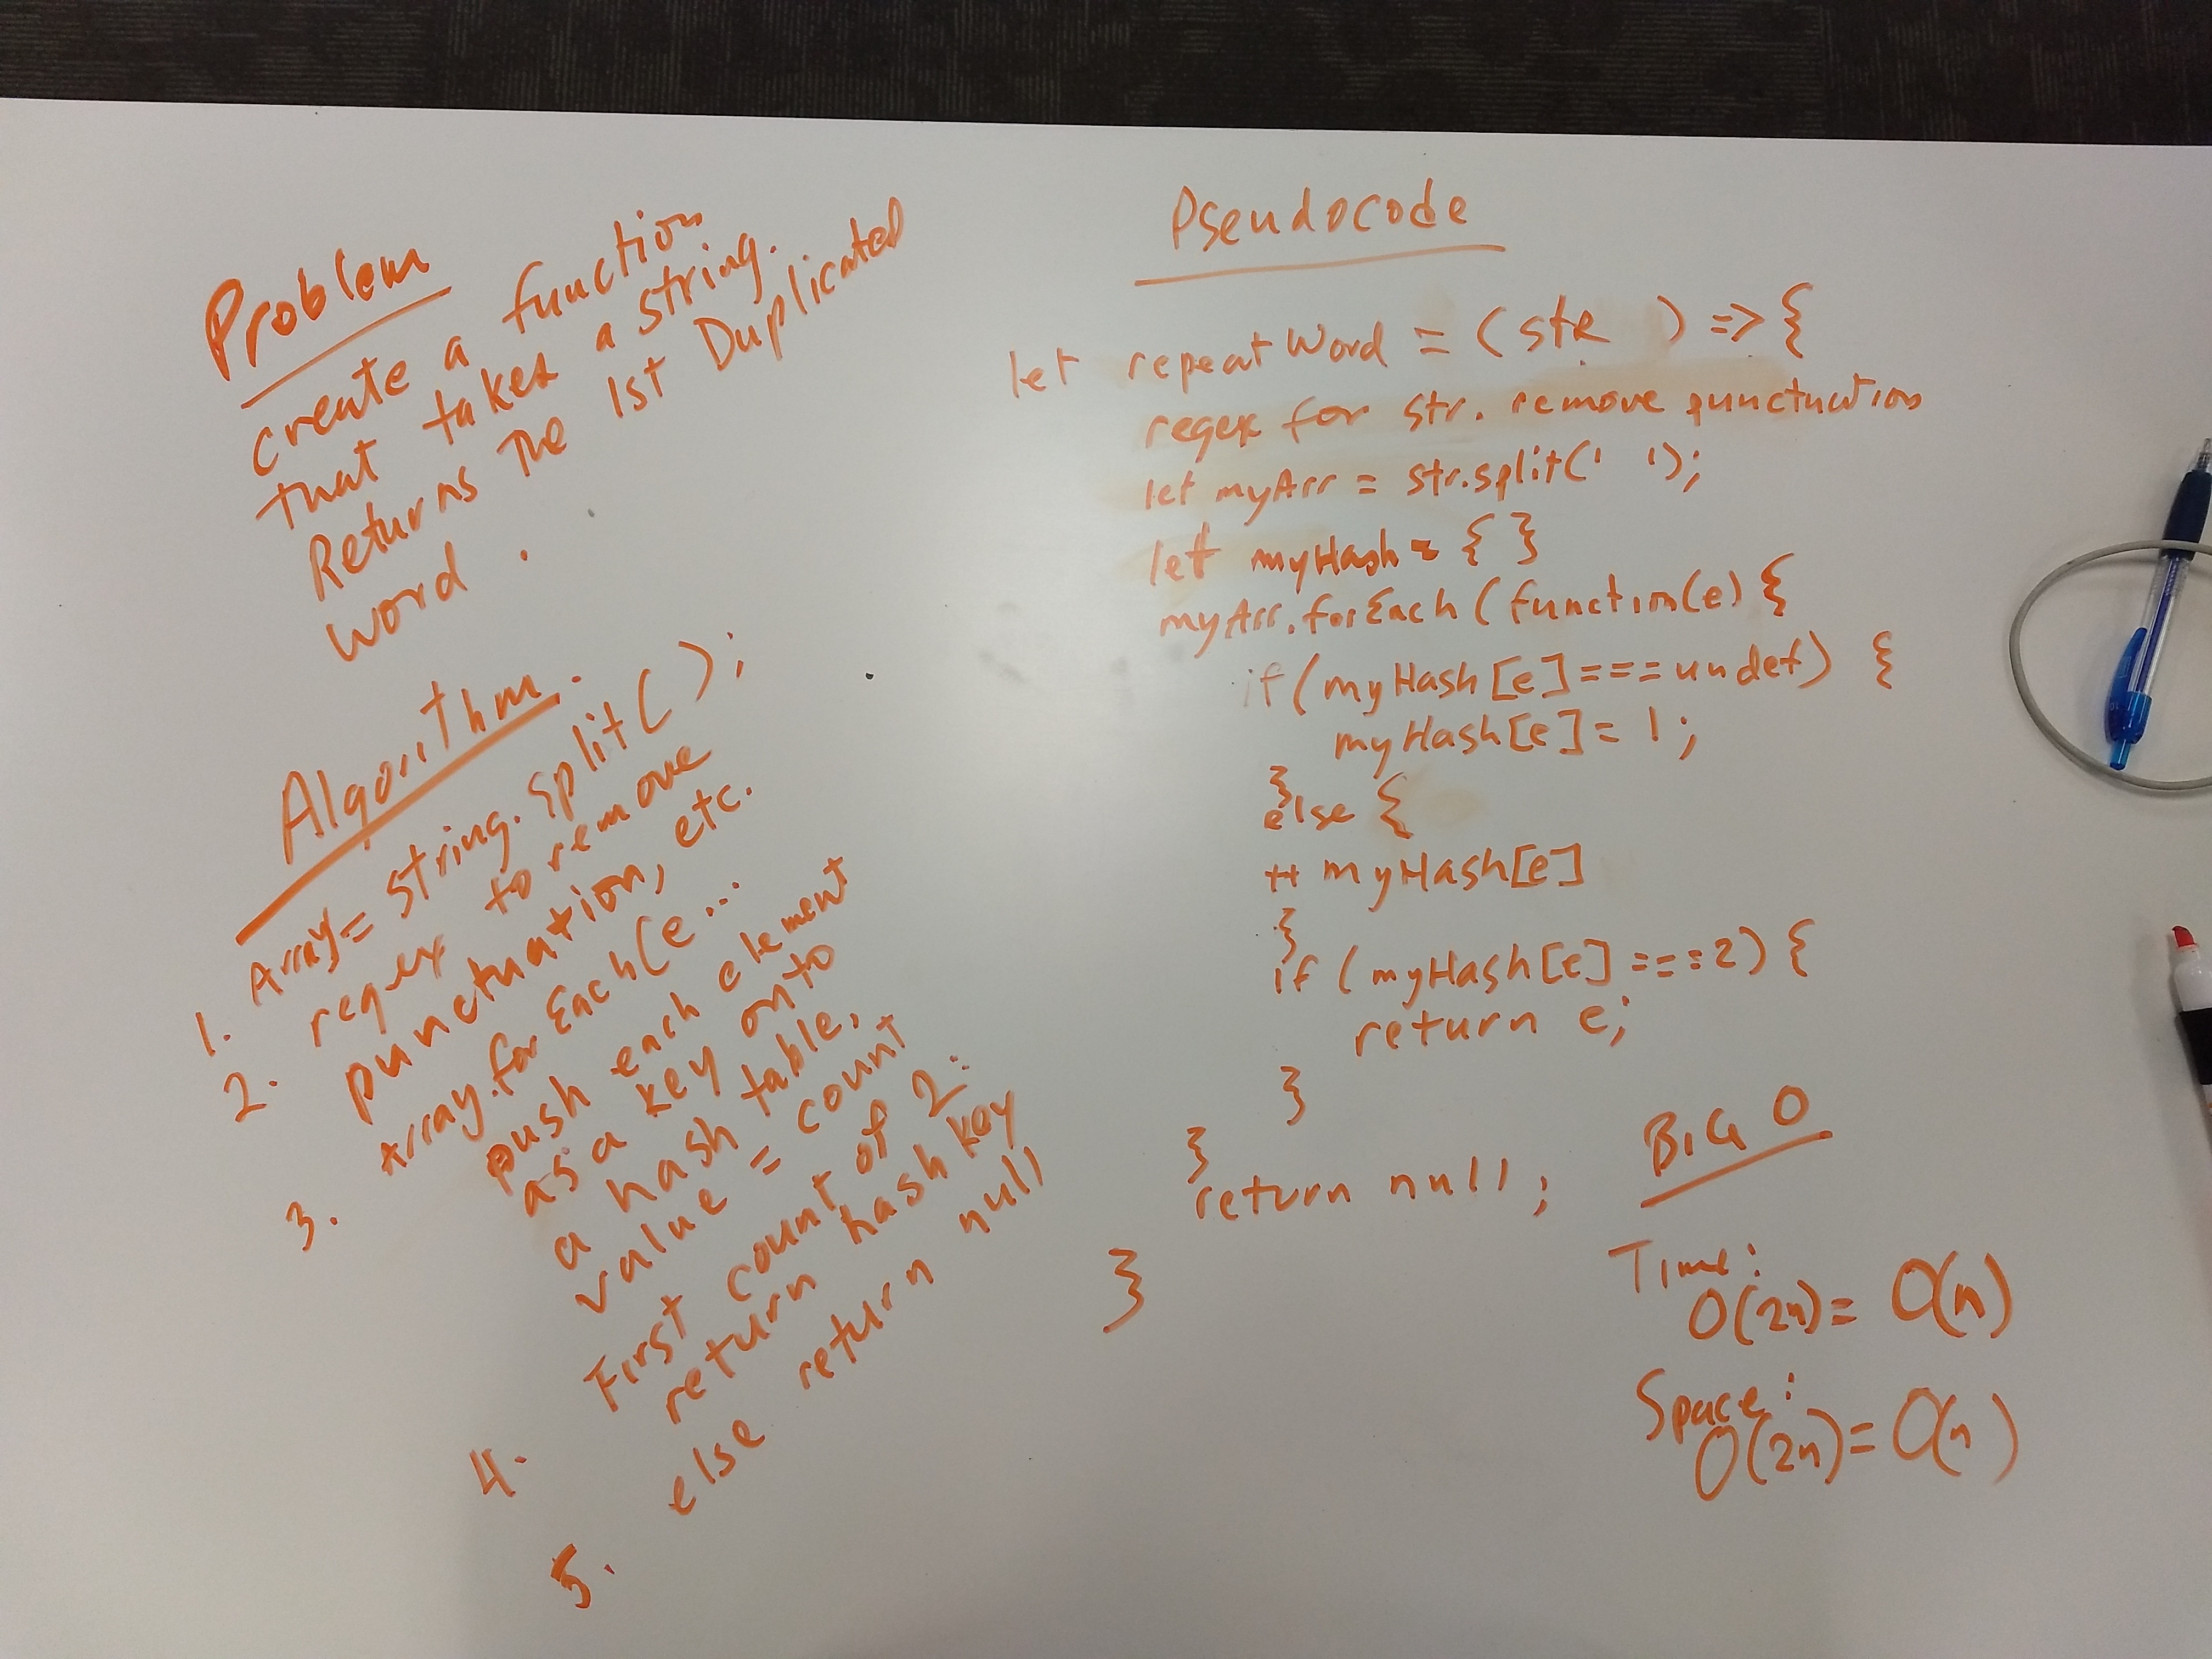 Problem
create a function
that takes a string.
Returns The 1st Duplicated
word.
Algorithm.
1. Array = string.split( );
2. regex to remove
punctuation, etc.
3. Array.forEach(e...
push each element
as a key onto
a hash table.
value = count
4. First count of 2:
return hash key
5. else return null
Pseudocode
let repeatWord = (str ) => {
regex for str. remove punctuation
let myArr = str.split(' ');
let myHash = { }
myArr.forEach(function(e) {
if (myHash[e] === undef) {
myHash[e] = 1;
}
else {
++ myHash[e]
}
if (myHash[e] === 2) {
return e;
}
}
return null;
}
BIG O
Time:
O(2n) = O(n)
Space:
O(2n) = O(n)